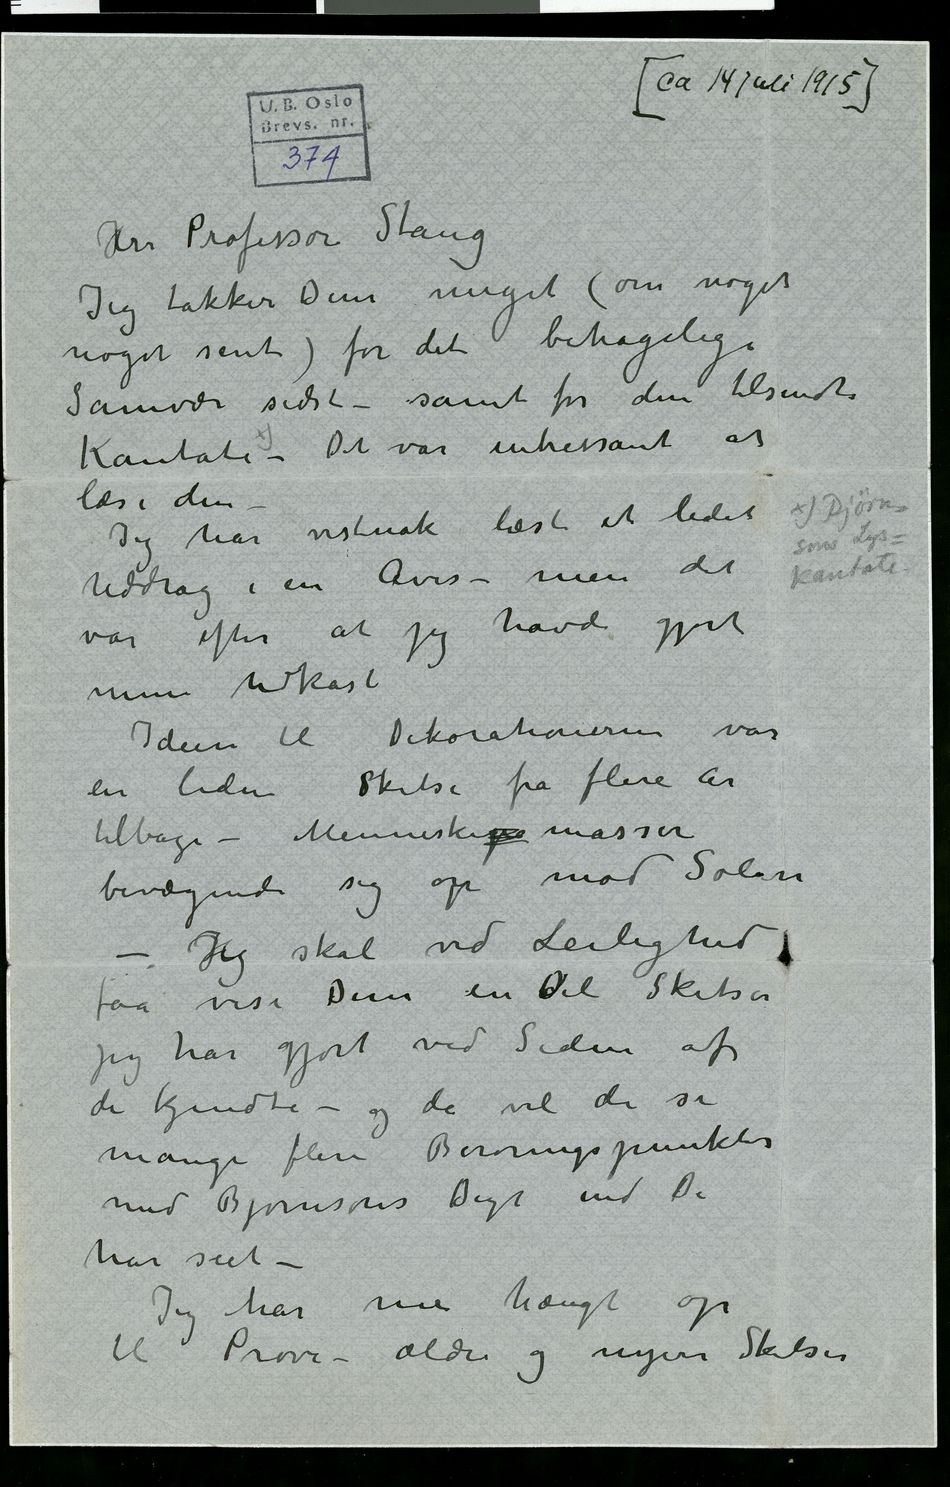 [ca 14 juli 1915]
U.B. Oslo
Brevs. nr.
374
Herr Professor Stang
Jeg takker Dem meget (om noget
noget sent) for det behagelige
Samvær sidst – samt for den tilsendte
Kantate x) – Det var intressant at
læse den –
Jeg har vistnok læst et lidet
Uddrag i en Avis – men det
var efter at jeg havde gjort
mine Udkast
x) Bjørn-
sons Lys=
kantate.
Ideen til Dekorationerne var
en liden Skitse fra flere Aar
tilbage – Menneskemasser
bevægende sig op mod Solen
– Jeg skal ved Leilighed
faa vise Dem en Del Skitser
jeg har gjort ved Siden af
de kjendte – og da vil de se
mange flere Berøringspunkter
med Bjørnsons Digt end De
har seet –
Jeg har nu hængt op
til Prøve – ældre og nyere Skitser